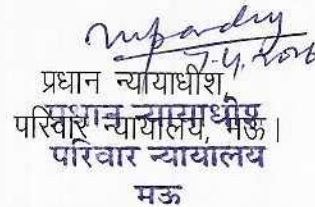 प्रधान न्यायाधीश,
परिवार न्यायालय, मऊ।
प्रधान न्यायाधीश
परिवार न्यायालय
मऊ